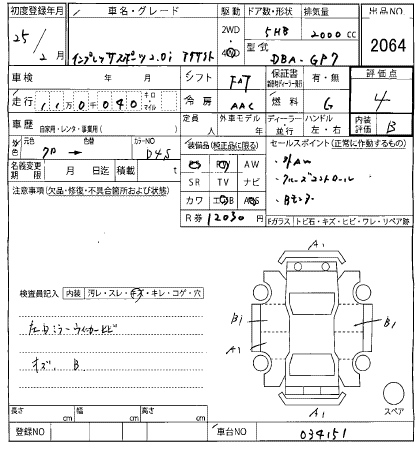 初度登録年月
車名・グレード
駆動
ドア数・形状
排気量
出品NO
25/2月
インプレッサスポーツ2.0i アイサイト
2WD
4WD
5HB
2000 CC
2064
型式
DBA-GP7
車検 年 月
シフト
FAT
保証書
有・無
評価点
走行
110040
キロ
マイル
冷房
AAC
燃料
G
4
車歴
自家用・レンタ・事業用( )
定員
人
外車モデル
年
ディーラー
並行
ハンドル
左・右
内装評価
B
外色
元色
クロ→
色替
カラーNO
D4S
装備品(純正品に限る)
セールスポイント(正常に動作するもの)
PS PW AW
・外AW
名義変更期限
月 日迄
積載
t
SR TV ナビ
・クルーズコントロール
注意事項(欠品・修復・不具合箇所および状態)
カワ エアB ABS
・Bモニター
R券
12030 円
Fガラス
トビ石・キズ・ヒビ・ワレ・リペア跡
A1
検査員記入
内装
汚レ・スレ・キズ・キレ・コゲ・穴
B1
B1
A1
左ドミラーウィンカーヒビ
キズ、B
スペア
A1
長さ cm
幅 cm
高さ cm
登録NO
車台NO
034151